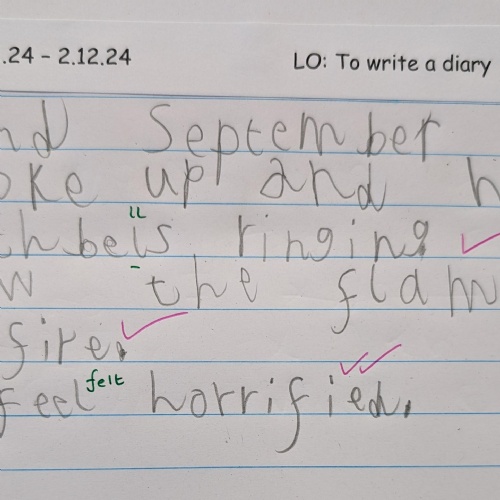 .24 - 2.12.24 LO: To write a diary
nd September
oke up and h
thbels ringing
ll
w the flam
fire.
feel felt horrified.